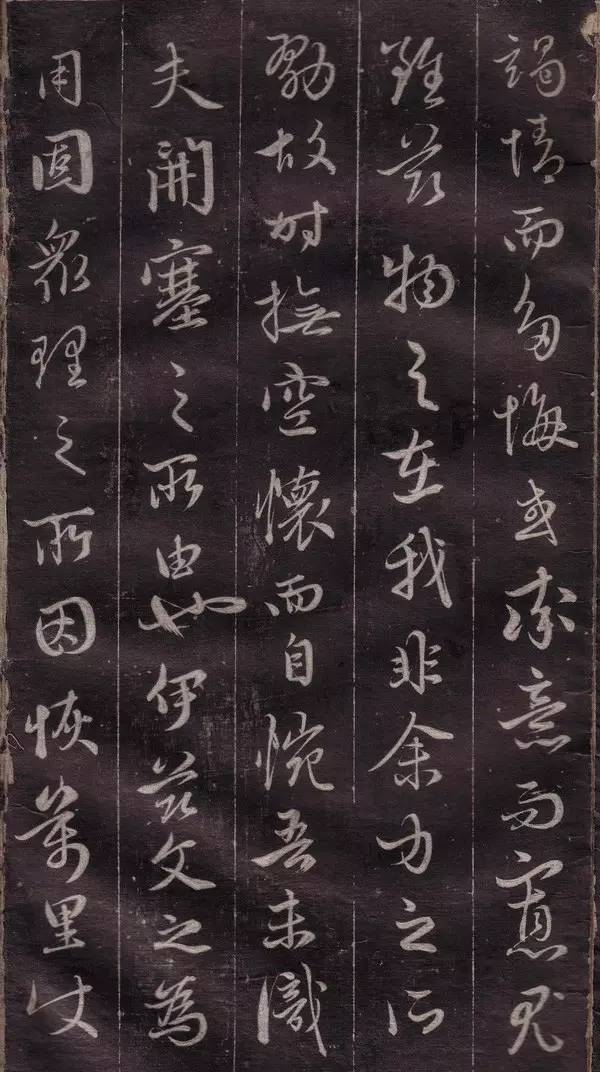 竭情而多悔或率意而寡尤
雖茲物之在我非余力之所
勠故時撫空懷而自惋吾未識
夫開塞之所由也伊茲文之為
用固眾理之所因恢萬里使